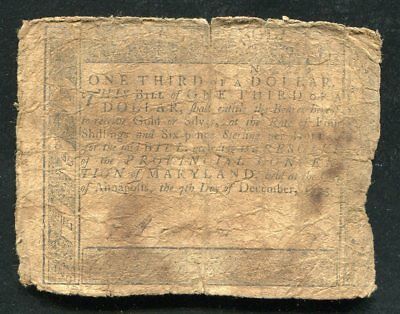 N
ONE THIRD of a DOLLAR.
THIS BILL of ONE THIRD of a
DOLLAR, shall entitle the Bearer hereof
to receive Gold or Silver, at the Rate of Four
Shillings and Six-pence Sterling per Dollar
for the said BILL, according to a RESOLVE
of the PROVINCIAL CONVEN-
TION of MARYLAND, held at the
of Annapolis, the 7th Day of December, 1775.